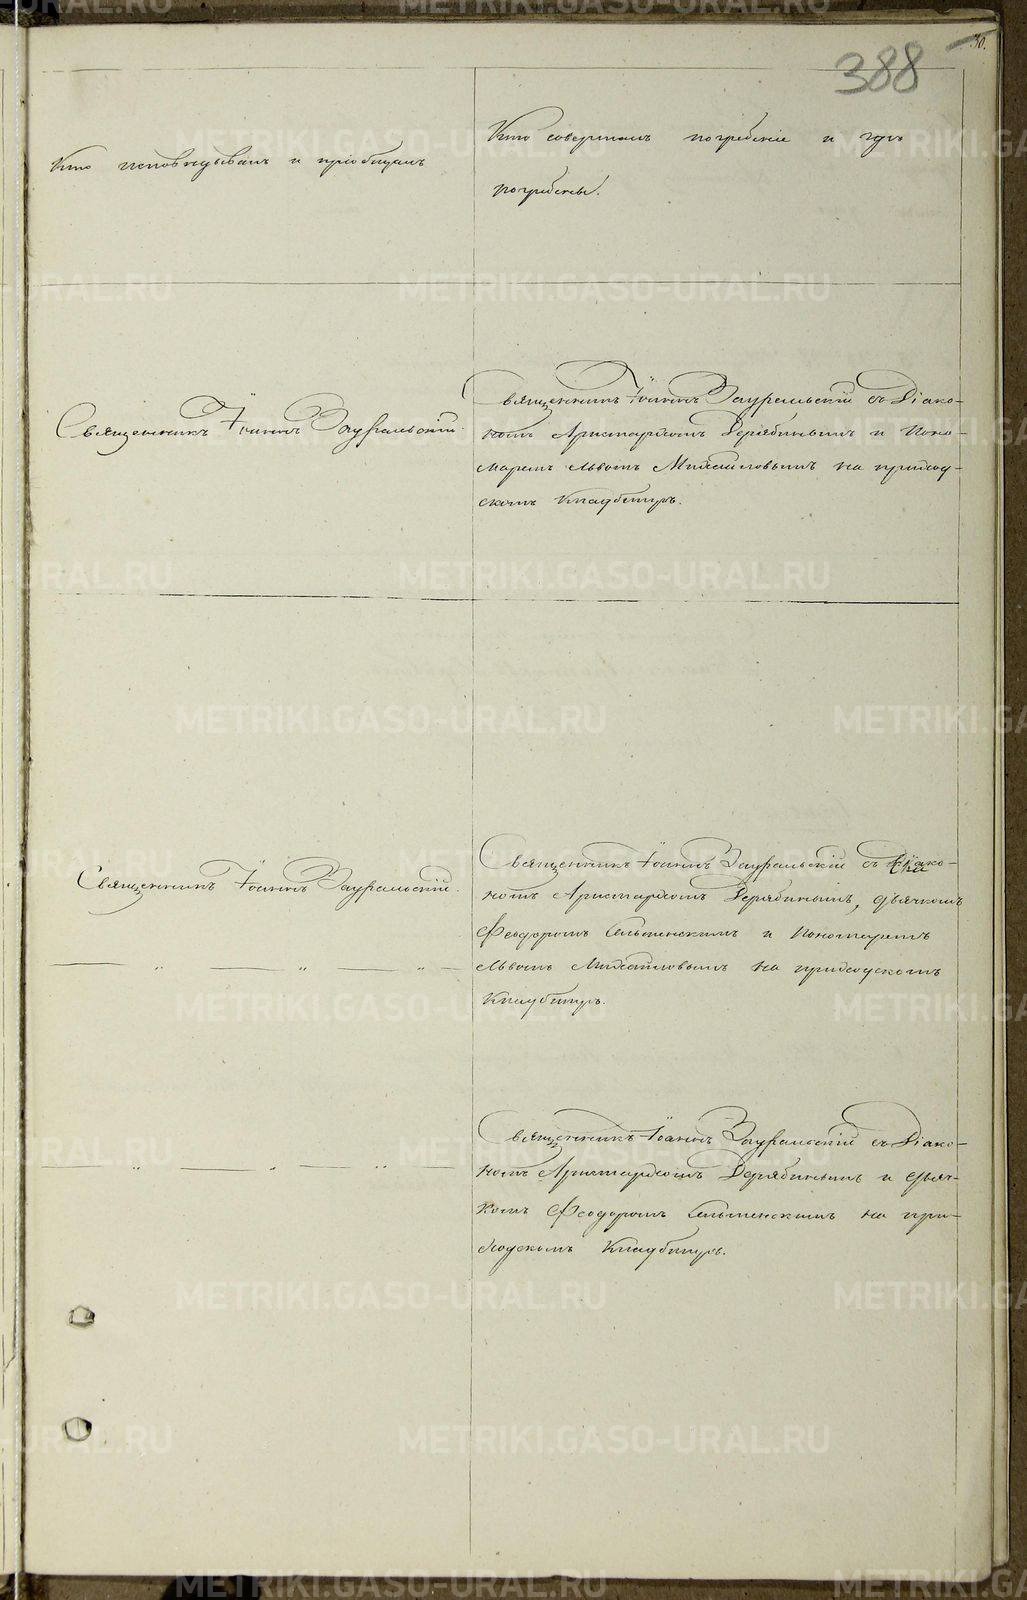 30.
388
Кто исповѣдывалъ и пріобщалъ
Кто совершалъ погребеніе и гдѣ
погребены.
Священникъ Іоаннъ Зауральскій.
Священникъ Іоаннъ Зауральскій съ Діако-
номъ Аристархомъ Дерябинымъ и Поно-
маремъ Львомъ Михайловымъ на приход-
скомъ кладбищѣ.
Священникъ Іоаннъ Зауральскій.
— „ — „ — „ —
Священникъ Іоаннъ Зауральскій съ Діако-
номъ Аристархомъ Дерябинымъ, дьячкомъ
Феодоромъ и Пономаремъ
Львомъ Михайловымъ на приходскомъ
кладбищѣ.
„ — „ — „ —
Священникъ Іоаннъ Зауральскій съ Діако-
номъ Аристархомъ Дерябинымъ и дьяч-
комъ Феодоромъ на при-
ходскомъ кладбищѣ.
METRIKI.GASO-URAL.RU